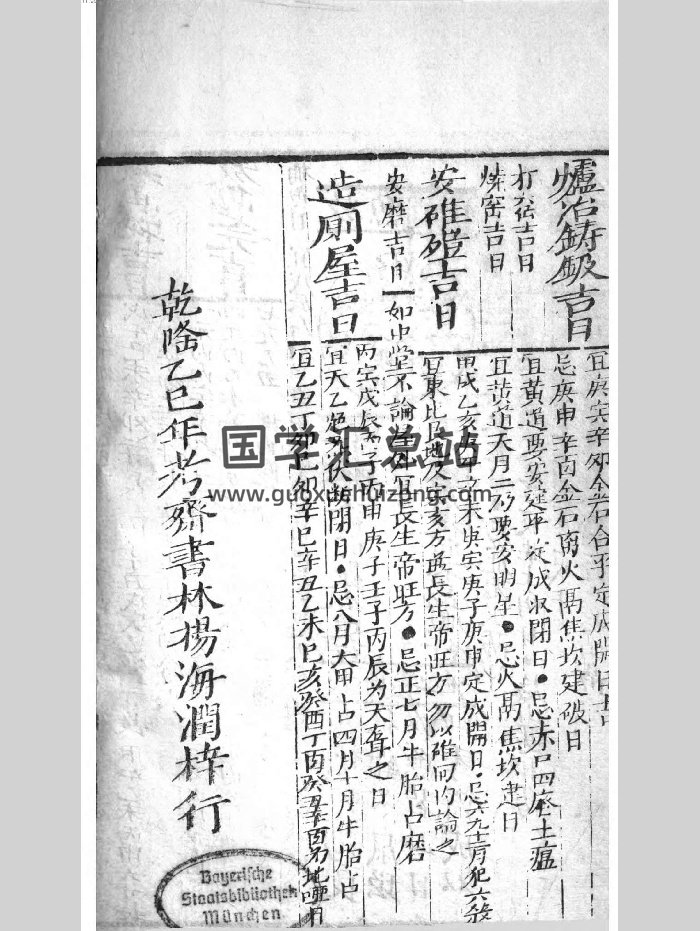 爐冶鋳吉日
宜庚寅辛卯金石合平定成開日吉
忌庚申辛酉金石火鬲焦坎建破日
打吉日
宜黄道要安建平定成收閉日·忌赤口四土瘟
燒窑吉日
宜黄道天月二要安明星·忌火鬲焦坎建日
安碓磑吉日
甲戌乙亥未庚寅庚子庚申定成開日·忌六九十二月犯六殺
宜東北寅亥方長生帝旺方勿以碓同均論之
安磨吉日
如中堂不論宜長生帝旺方·忌正七月牛胎占磨
造厠屋吉日
丙寅戊辰丙子丙申庚子壬子丙辰为天聋之日
宜天乙伏断閉日·忌八月大甲占四月十月牛胎占
宜乙丑丁卯己卯辛巳辛丑乙未巳亥癸酉丁酉癸丑辛酉为地哑日
乾隆乙巳年考齊書林揚海潤梓行
国学汇总站
www.guoxuehuizong.com
Bayerische
Staatsbibliothek
München